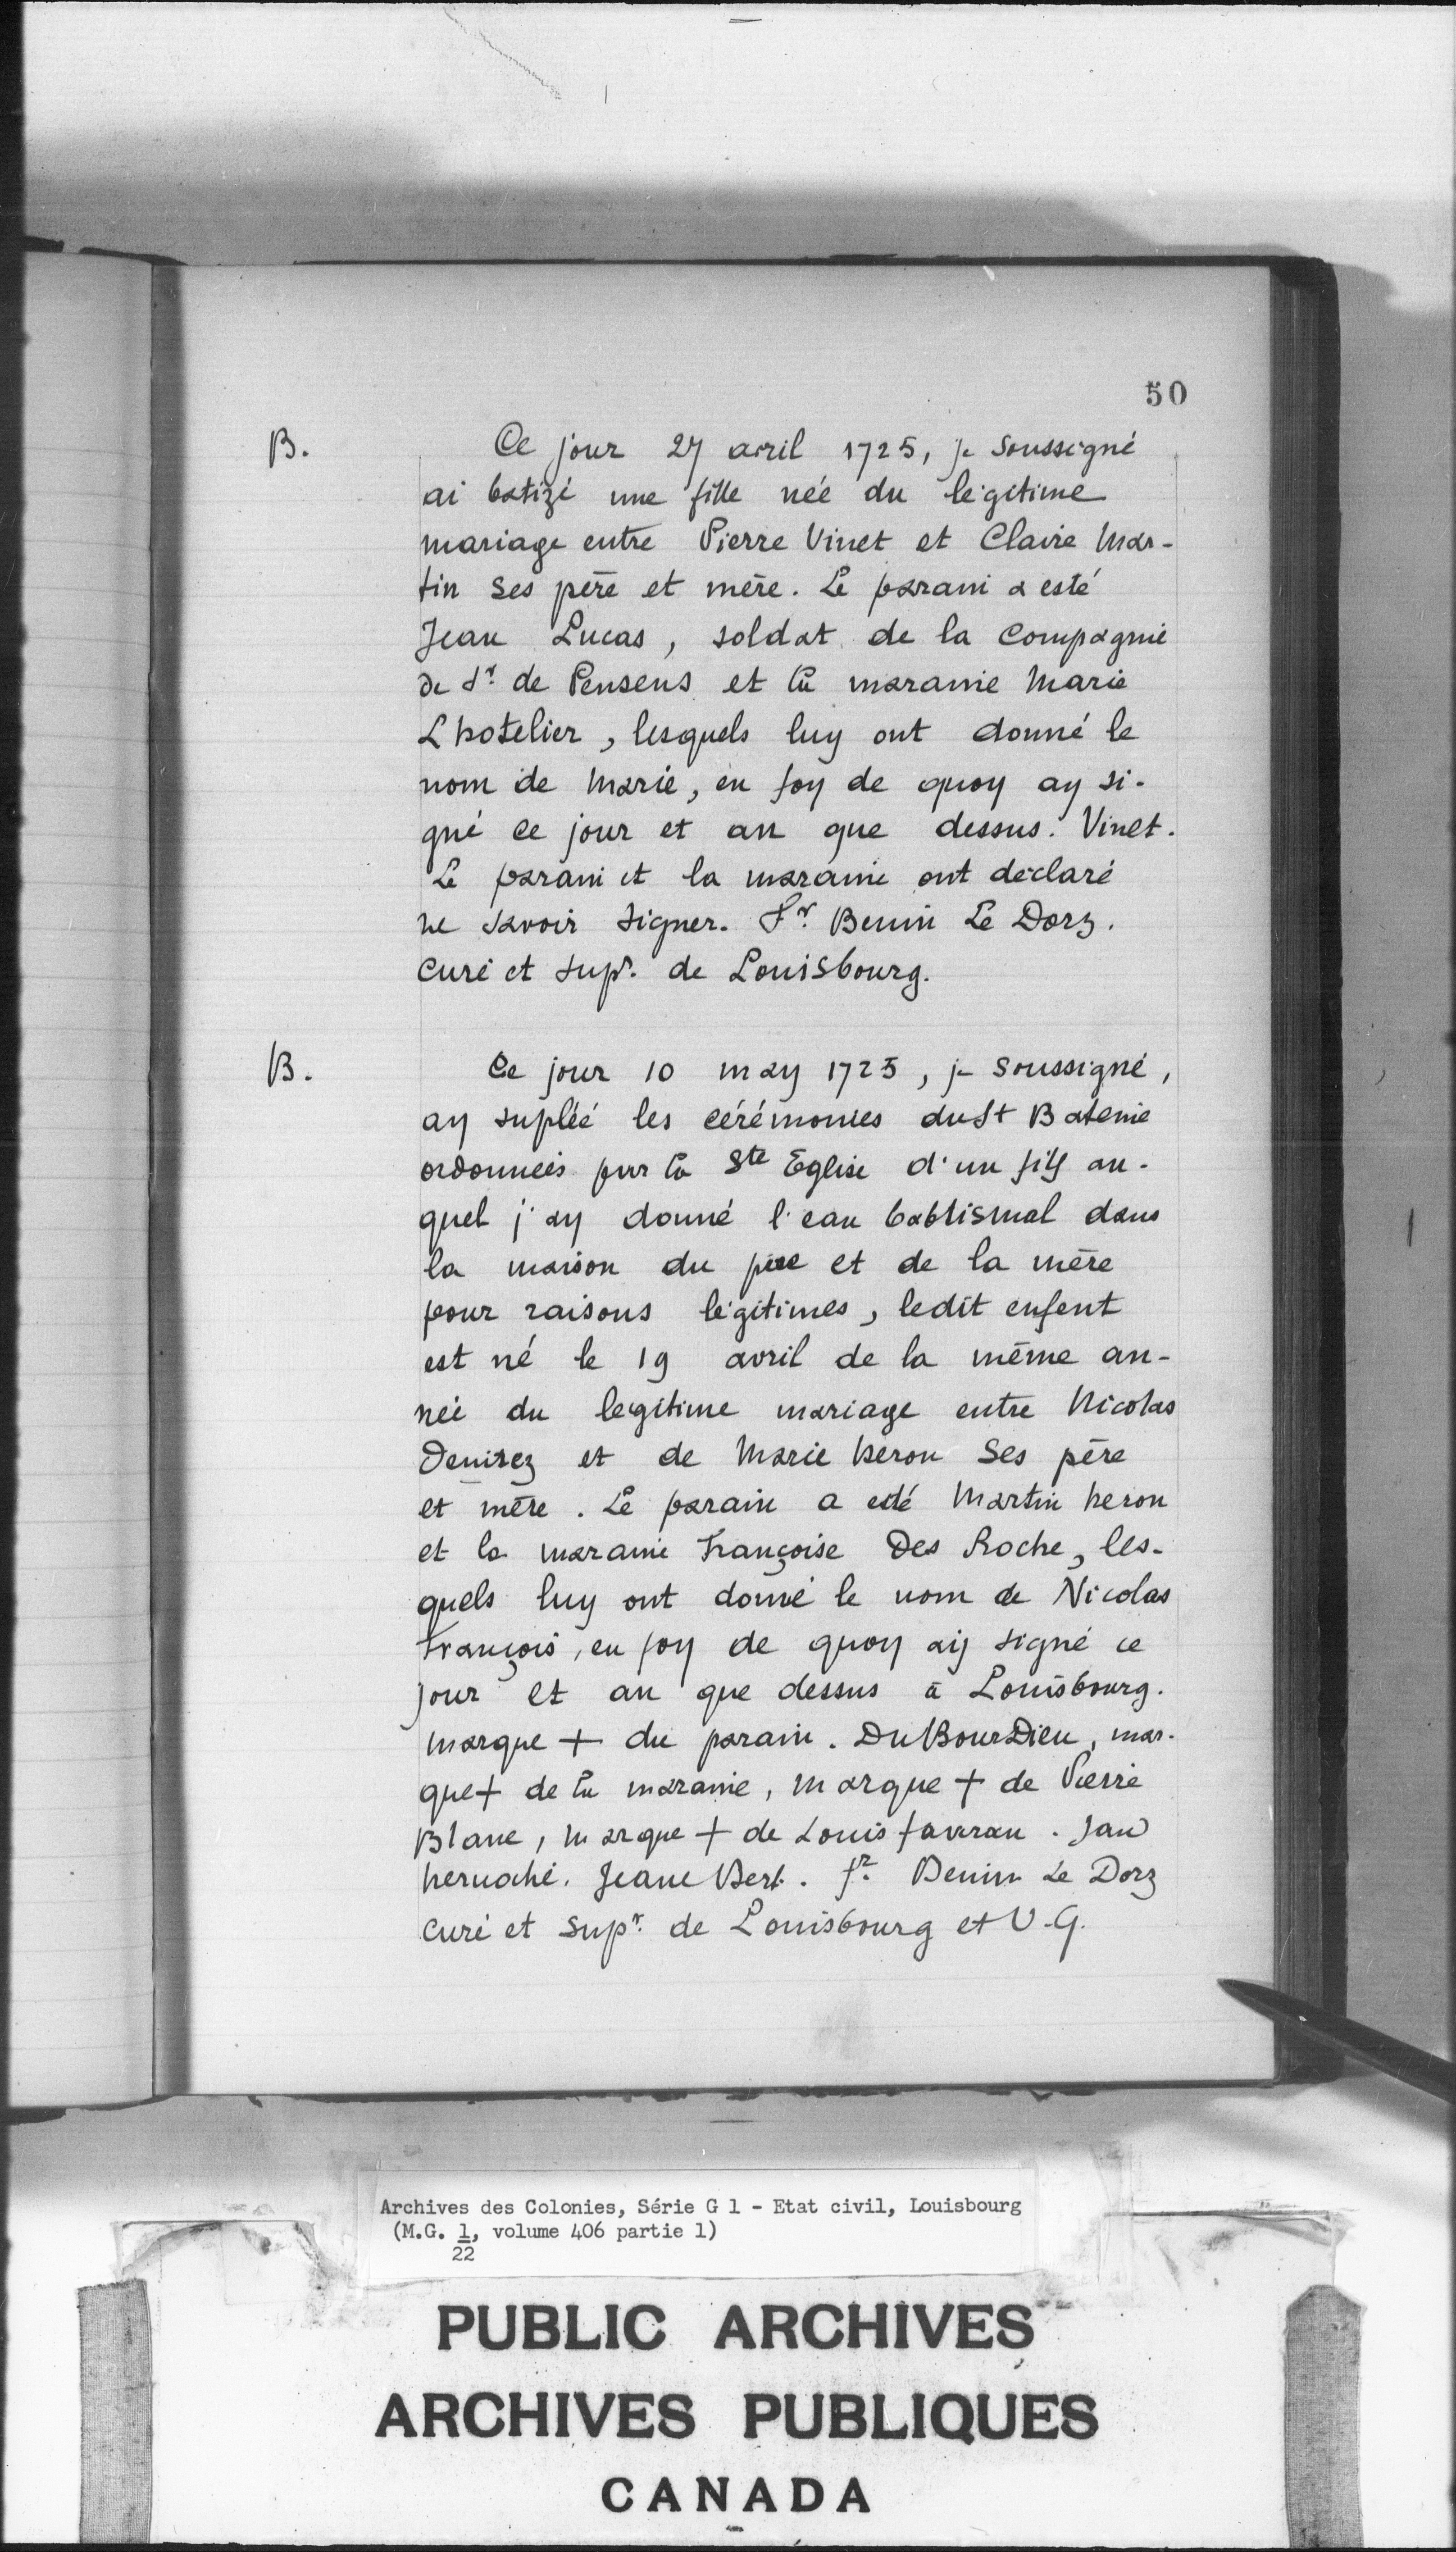 50
B. Ce jour 27 avril 1725, je soussigné
ai batizé une fille née du légitime
mariage entre Pierre Vinet et Claire Mar-
tin ses père et mère. Le parain a esté
Jean Lucas, soldat de la Compagnie
de Sr. de Pensens et la maraine Marie
Lhotelier, lesquels luy ont donné le
nom de Marie, en foy de quoy ay si-
gné ce jour et an que dessus. Vinet.
Le parain et la maraine ont déclaré
ne savoir signer. Fr. Benin Le Dorz.
Curé et Supr. de Louisbourg.
B. Ce jour 10 may 1725, je soussigné,
ay supléé les cérémonies du St Bateme
ordonnées par la Ste Eglise d'un fils au-
quel j'ay donné l'eau babtismal dans
la maison du père et de la mère
pour raisons légitimes, ledit enfent
est né le 19 avril de la même an-
née du legitime mariage entre Nicolas
Denisez et de Marie heron Ses père
et mère. Le parain a esté Martin heron
et la maraine Françoise Des Roche, les-
quels luy ont donné le nom de Nicolas
François, en foy de quoy aÿ signé ce
jour et an que dessus à Louisbourg.
marque + du parain. DuBourDieu, mar-
que + de la maraine, marque + de Pierre
Blanc, marque + de Louis favreau. Jan
heruoché. Jeane Bert. fr. Benin Le Dorz
Curé et Supr. de Louisbourg et V.G.
Archives des Colonies, Série G 1 - Etat civil, Louisbourg
(M.G. 1, volume 406 partie 1)
22
PUBLIC ARCHIVES
ARCHIVES PUBLIQUES
CANADA